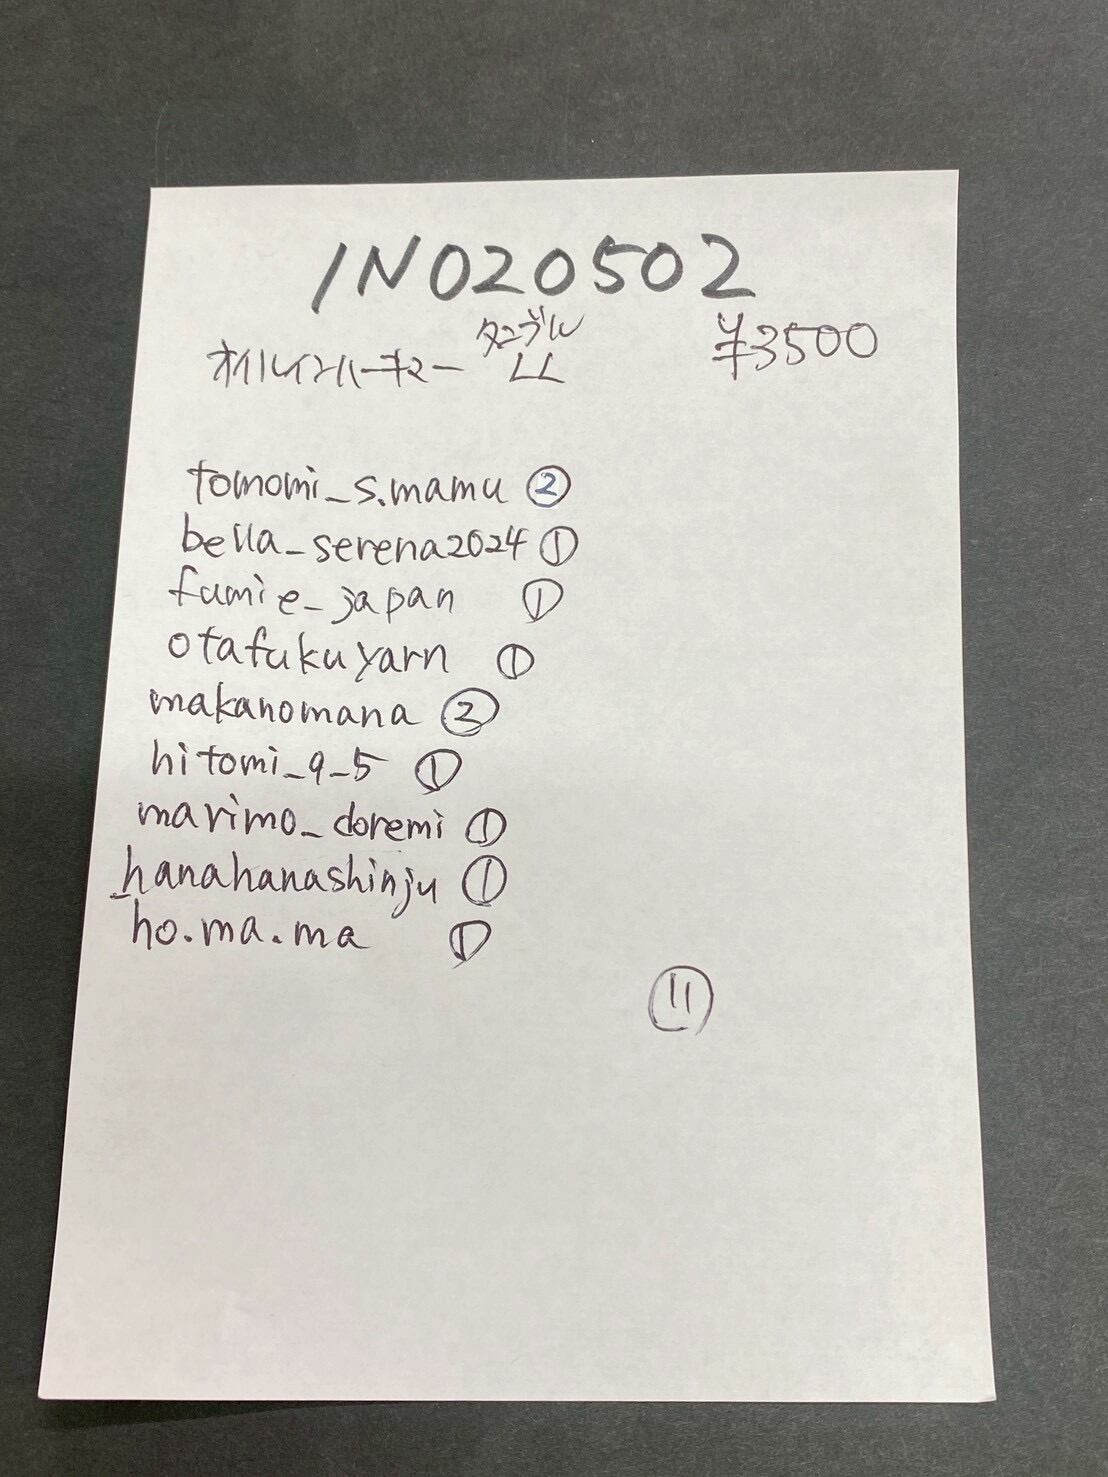 IN020502
タンブル ¥3500
オイルインハーキマー LL
tomomi_s.mamu ②
bella_serena2024 ①
fumie_japan ①
otafukuyarn ①
makanomana ②
hitomi_9_5 ①
marimo_doremi ①
_hanahanashinju ①
ho.ma.ma ①
⑪